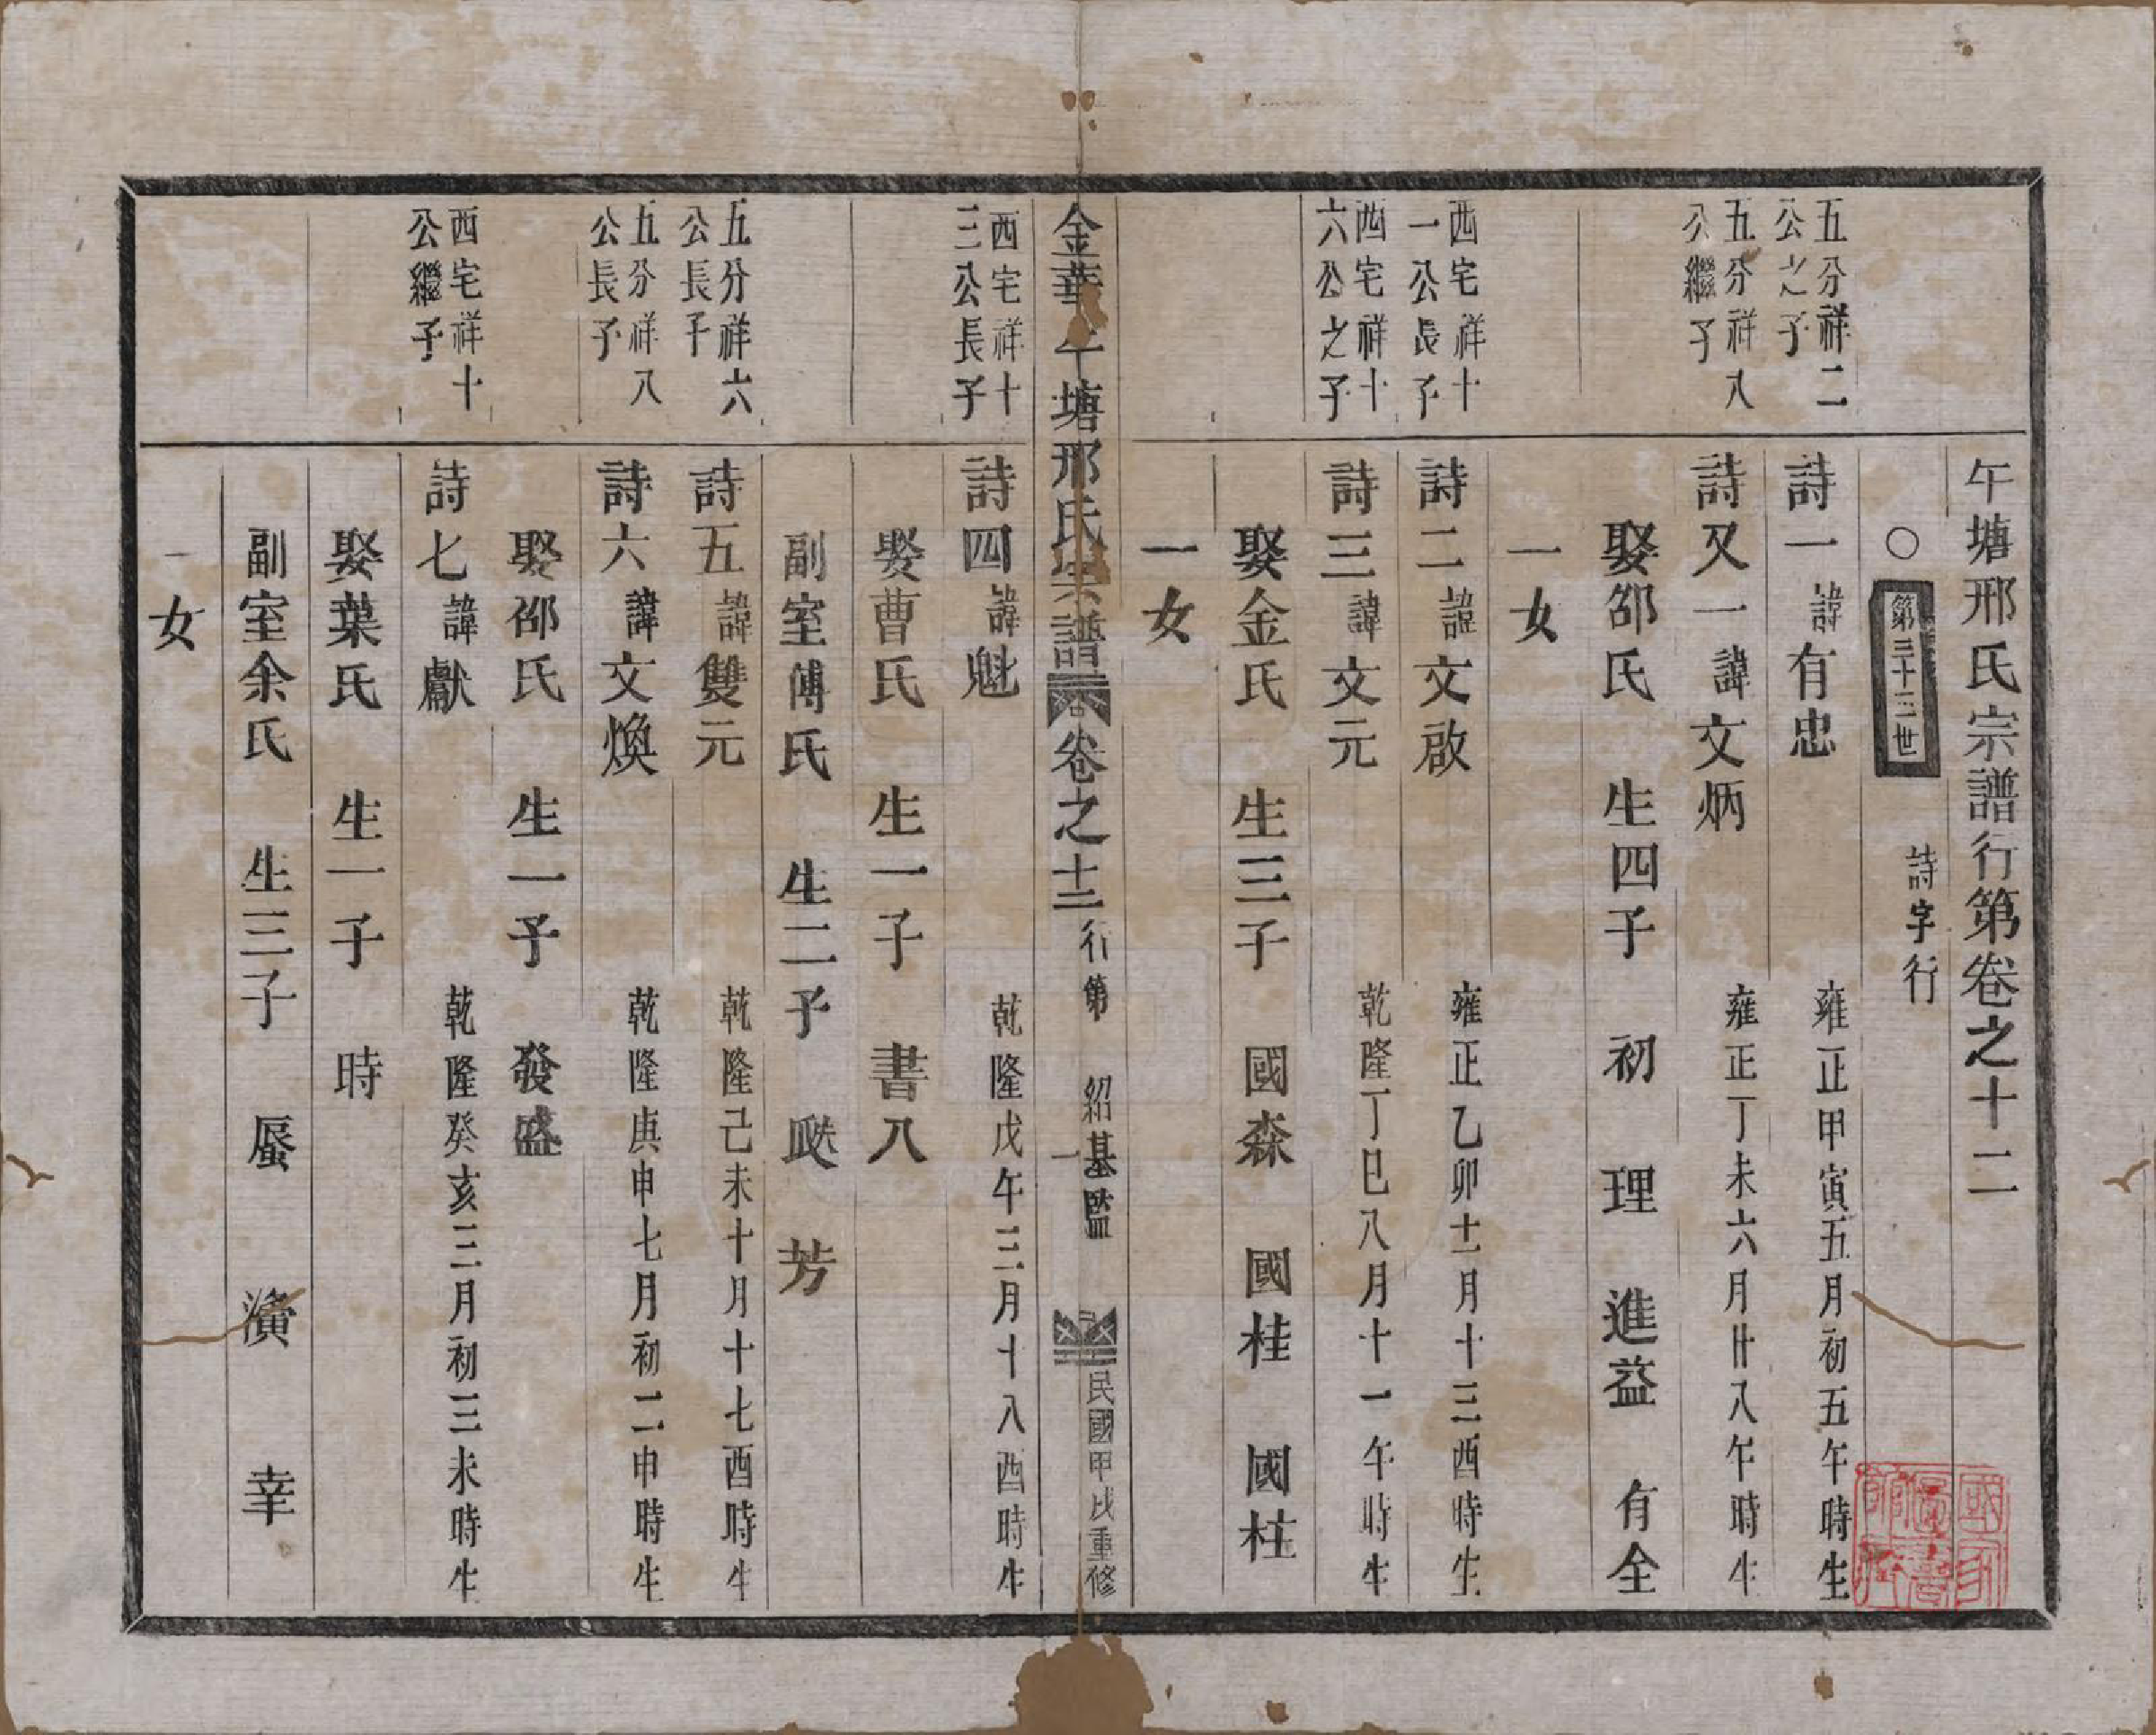 午塘邢氏宗譜行第卷之十二
○ 第三十三世 詩字行
五分祥二公之子
詩一 諱有忠 雍正甲寅五月初五午時生
五分祥八公繼子
詩又一 諱文炳 雍正丁未六月廿八午時生
娶邵氏 生四子 初 理 進益 有全
一女
西宅祥十一公長子
詩二 諱文啟 雍正乙卯十一月十三酉時生
西宅祥十六公之子
詩三 諱文元 乾隆丁巳八月十一午時生
娶金氏 生三子 國森 國桂 國柱
一女
金華午塘邢氏宗譜 卷之十二 行第 一 紹基監 民國甲戌重修
西宅祥十三公長子
詩四 諱魁 乾隆戊午三月十八酉時生
娶曹氏 生一子 書八
副室傅氏 生二子 芳
五分祥六公長子
詩五 諱雙元 乾隆己未十月十七酉時生
五分祥八公長子
詩六 諱文煥 乾隆庚申七月初二申時生
娶邵氏 生一子 發盛
西宅祥十公繼子
詩七 諱獻 乾隆癸亥三月初三未時生
娶葉氏 生一子 時
副室余氏 生三子 蜃 濱 幸
一女